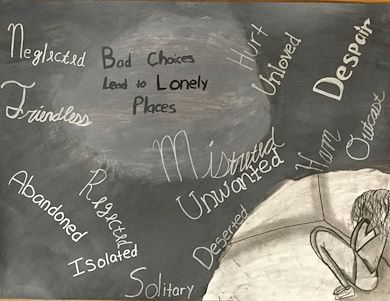 Neglected
Bad Choices
Lead to Lonely
Places
Hurt
Unloved
Despair
Friendless
Mistreted
Unwanted
Ham
Outcast
Abandoned
Rejected
Isolated
Deserted
Solitary